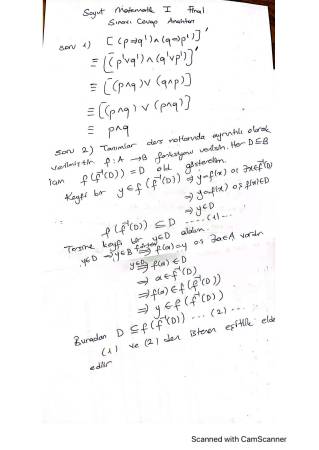 Soyut Matematik I Final
Sınavı Cevap Anahtarı
Soru 1) [(p⇒q')∧(q⇒p')]'
≡ [(p'∨q')∧(q'∨p')]'
≡ [(p∧q)∨(q∧p)]
≡ [(p∧q)∨(p∧q)]
≡ p∧q
Soru 2) Tanımlar ders notlarında ayrıntılı olarak
verilmiştir. f:A→B fonksiyonu verilsin. Her D⊆B
için f(f⁻¹(D))=D old. gösterelim.
Keyfi bir y∈f(f⁻¹(D)) ⇒ y=f(x) ∃x∈f⁻¹(D)
⇒ y=f(x) f(x)∈D
⇒ y∈D
f(f⁻¹(D))⊆D ....(1)...
Tersine keyfi bir y∈D alalım.
y∈D ⇒ y∈B ⇒ f(a)=y ∃a∈A vardır
y∈D ⇒ f(a)∈D
⇒ a∈f⁻¹(D)
⇒ f(a)∈f(f⁻¹(D))
⇒ y∈f(f⁻¹(D))
Buradan D⊆f(f⁻¹(D)) ...(2)...
(1) ve (2) den istenen eşitlik elde
edilir
Scanned with CamScanner